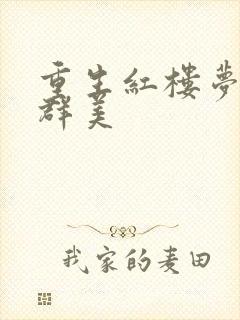 重生紅樓夢
群美
我家的麦田